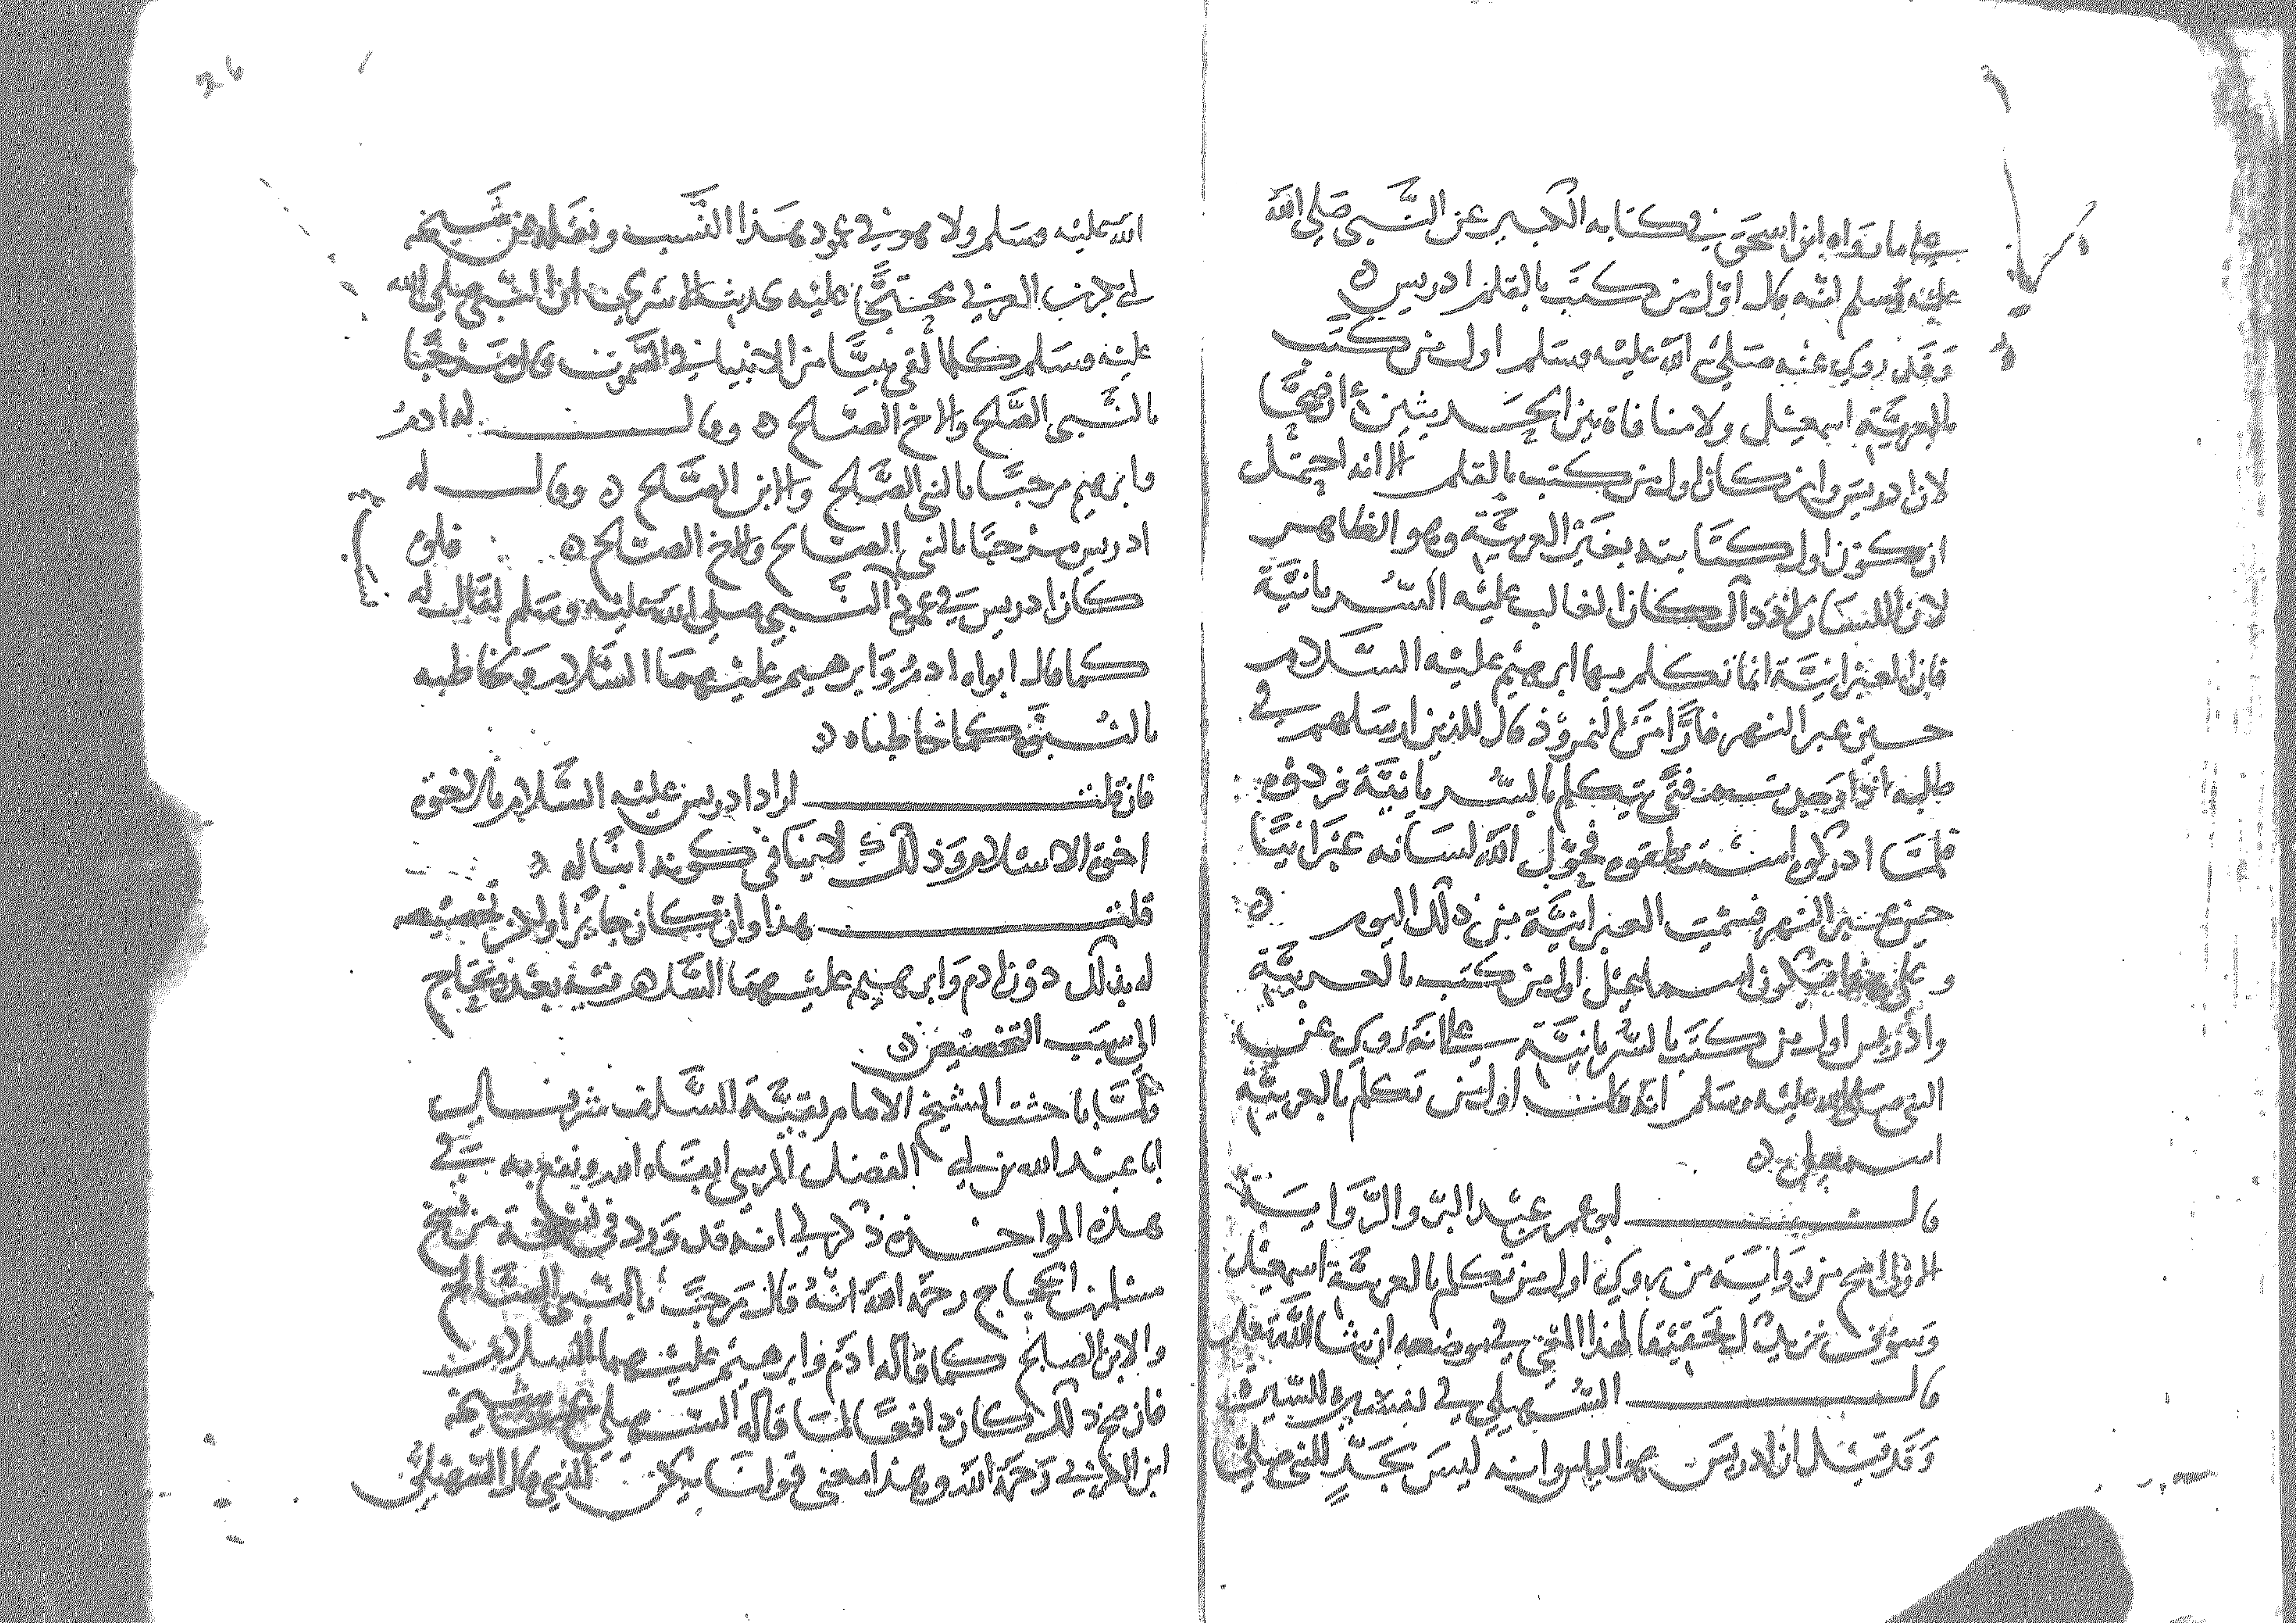 على ما رواه ابن اسحق في كتابه الكبير عن النبي صلى الله
عليه وسلم انه قال اول من كتب بالقلم ادريس
وقد روي عنه صلى الله عليه وسلم اول من كتب
بالعربية اسمعيل ولا منافاة بين الحديثين ان صحا
لان ادريس وان كان اول من كتب بالقلم الا انه احتمل
ان تكون اول كتابته بغير العربية وهو الظاهر
لان اللسان اذ ذاك كان الغالب عليه السريانية
فان العبرانية انما تكلم بها ابرهيم عليه السلام
حين عبر النهر فارا من النمروذ قال للذين ارسلهم في
طلبه اذا وجدتم فتى يتكلم بالسريانية فردوه
فلما ادركوه استنطقوه فحول الله لسانه عبرانيا
حين عبر النهر فسميت العبرانية من ذلك اليوم
وعلى هذا فيكون اسماعيل اول من كتب بالعربية
وادريس اول من كتب بالسريانية على انه روي عن
النبي صلى الله عليه وسلم انه قال اول من تكلم بالعربية
اسمعيل
قال ابو عمر عبد البر والرواية
الاولى اصح من رواية من روى اول من تكلم بالعربية اسمعيل
وسنوفي تحقيقا لهذا المعنى في موضعه ان شا الله تعالى
قال السهيلي في تفسيره للسيرة
وقد قيل ان ادريس هو الياس وانه ليس بجد للنبي صلى
26
الله عليه وسلم ولا هو في عمود هذا النسب ونقله عن شيخه
ابي بكر بن العربي محتجا عليه بحديث الاسرى ان النبي صلى الله
عليه وسلم كلما لقي نبيا من الانبيا في السموت قال مرحبا
بالنبي الصلح والاخ الصلح وقال له ادم
وابرهيم مرحبا بالنبي الصلح والابن الصلح وقال له
ادريس مرحبا بالنبي الصالح والاخ الصالح فلو
كان ادريس في عمود النبي صلى الله عليه وسلم لقال له
كما قال ابواه ادم وابرهيم عليهما السلام وخاطبه
بالبنوة كما خاطباه
فان قلت اراد ادريس عليه السلام بالاخوة
اخوة الاسلام وذلك لا ينافي كونه ابنا له
قلت هذا وان كان جايزا ولان تخصيصه
له بذلك دون ادم وابرهيم عليهما السلام فيه بعد ويحتاج
الى سبب التخصيص
ولما باحثت الشيخ الامام بقية السلف شرف
ابا عبد الله بن ابي الفضل المرسي ابقاه الله ونفع به في
هذه المواخذة ذكر لي انه قد ورد في نسخة من نسخ
مسلم بن الحجاج رحمه الله انه قال مرحبا بالنبي الصالح
والابن الصلح كما قاله ادم وابرهيم عليهما السلام
فان صح ذلك كان دافعا لما قاله السهيلي عن شيخه
ابن العربي رحمة الله وهذا معنى قولنا يكن للذي قال السهيلي